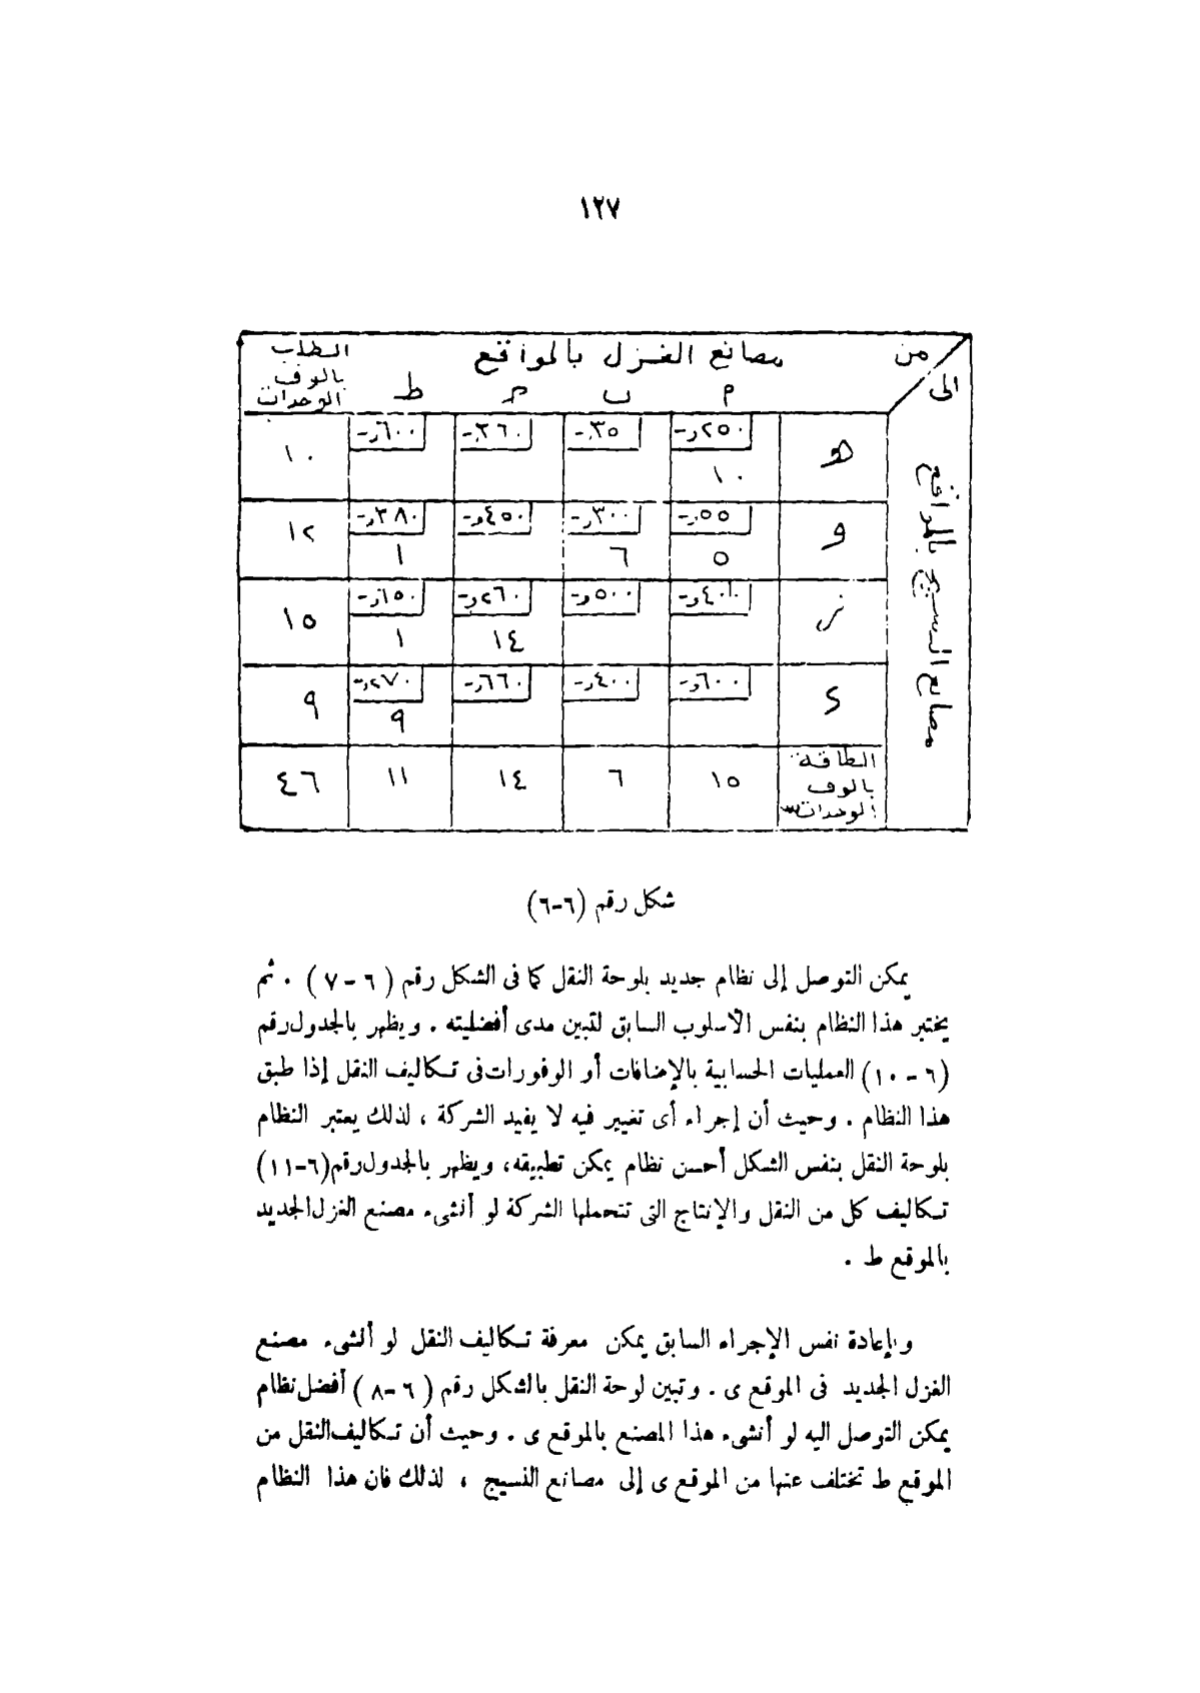 ١٢٧
من
إلى
مصانع الغزل بالمواقع
الطلب
بالوف
الوحدات
م ب ح ط
مصانع النسيج بالمواقع
هـ ٢٥٠ر- ٣٥ر- ٣٦٠ر- ٦٠٠ر- ١٠
١٠
و ٥٥ر- ٣٠٠ر- ٤٥٠ر- ٣٨٠ر- ١٢
٥ ٦ ١
ز ٤٠٠ر- ٥٠٠ر- ٢٦٠ر- ١٥٠ر- ١٥
١٤ ١
ى ٦٠٠ر- ٤٠٠ر- ٦٦٠ر- ٢٧٠ر- ٩
٩
الطاقة
بالوف
الوحدات
١٥ ٦ ١٤ ١١ ٤٦
شكل رقم (٦-٦)
يمكن التوصل إلى نظام جديد بلوحة النقل كما فى الشكل رقم ( ٦ - ٧ ) . ثم
يختبر هذا النظام بنفس الأسلوب السابق لتبين مدى أفضليته . ويظهر بالجدول رقم
(٦ - ١٠) العمليات الحسابية بالإضافات أو الوفورات فى تكاليف النقل إذا طبق
هذا النظام . وحيث أن إجراء أى تغيير فيه لا يفيد الشركة ، لذلك يعتبر النظام
بلوحة النقل بنفس الشكل أحسن نظام يمكن تطبيقه، ويظهر بالجدول رقم (٦-١١)
تكاليف كل من النقل والإنتاج التى تتحملها الشركة لو أنشىء مصنع الغزل الجديد
بالموقع ط .
وبإعادة نفس الإجراء السابق يمكن معرفة تكاليف النقل لو أنشىء مصنع
الغزل الجديد فى الموقع ى . وتبين لوحة النقل بالشكل رقم ( ٦ -٨ ) أفضل نظام
يمكن التوصل اليه لو أنشىء هذا المصنع بالموقع ى . وحيث أن تكاليف النقل من
الموقع ط تختلف عنها من الموقع ى إلى مصانع النسيج ، لذلك فان هذا النظام